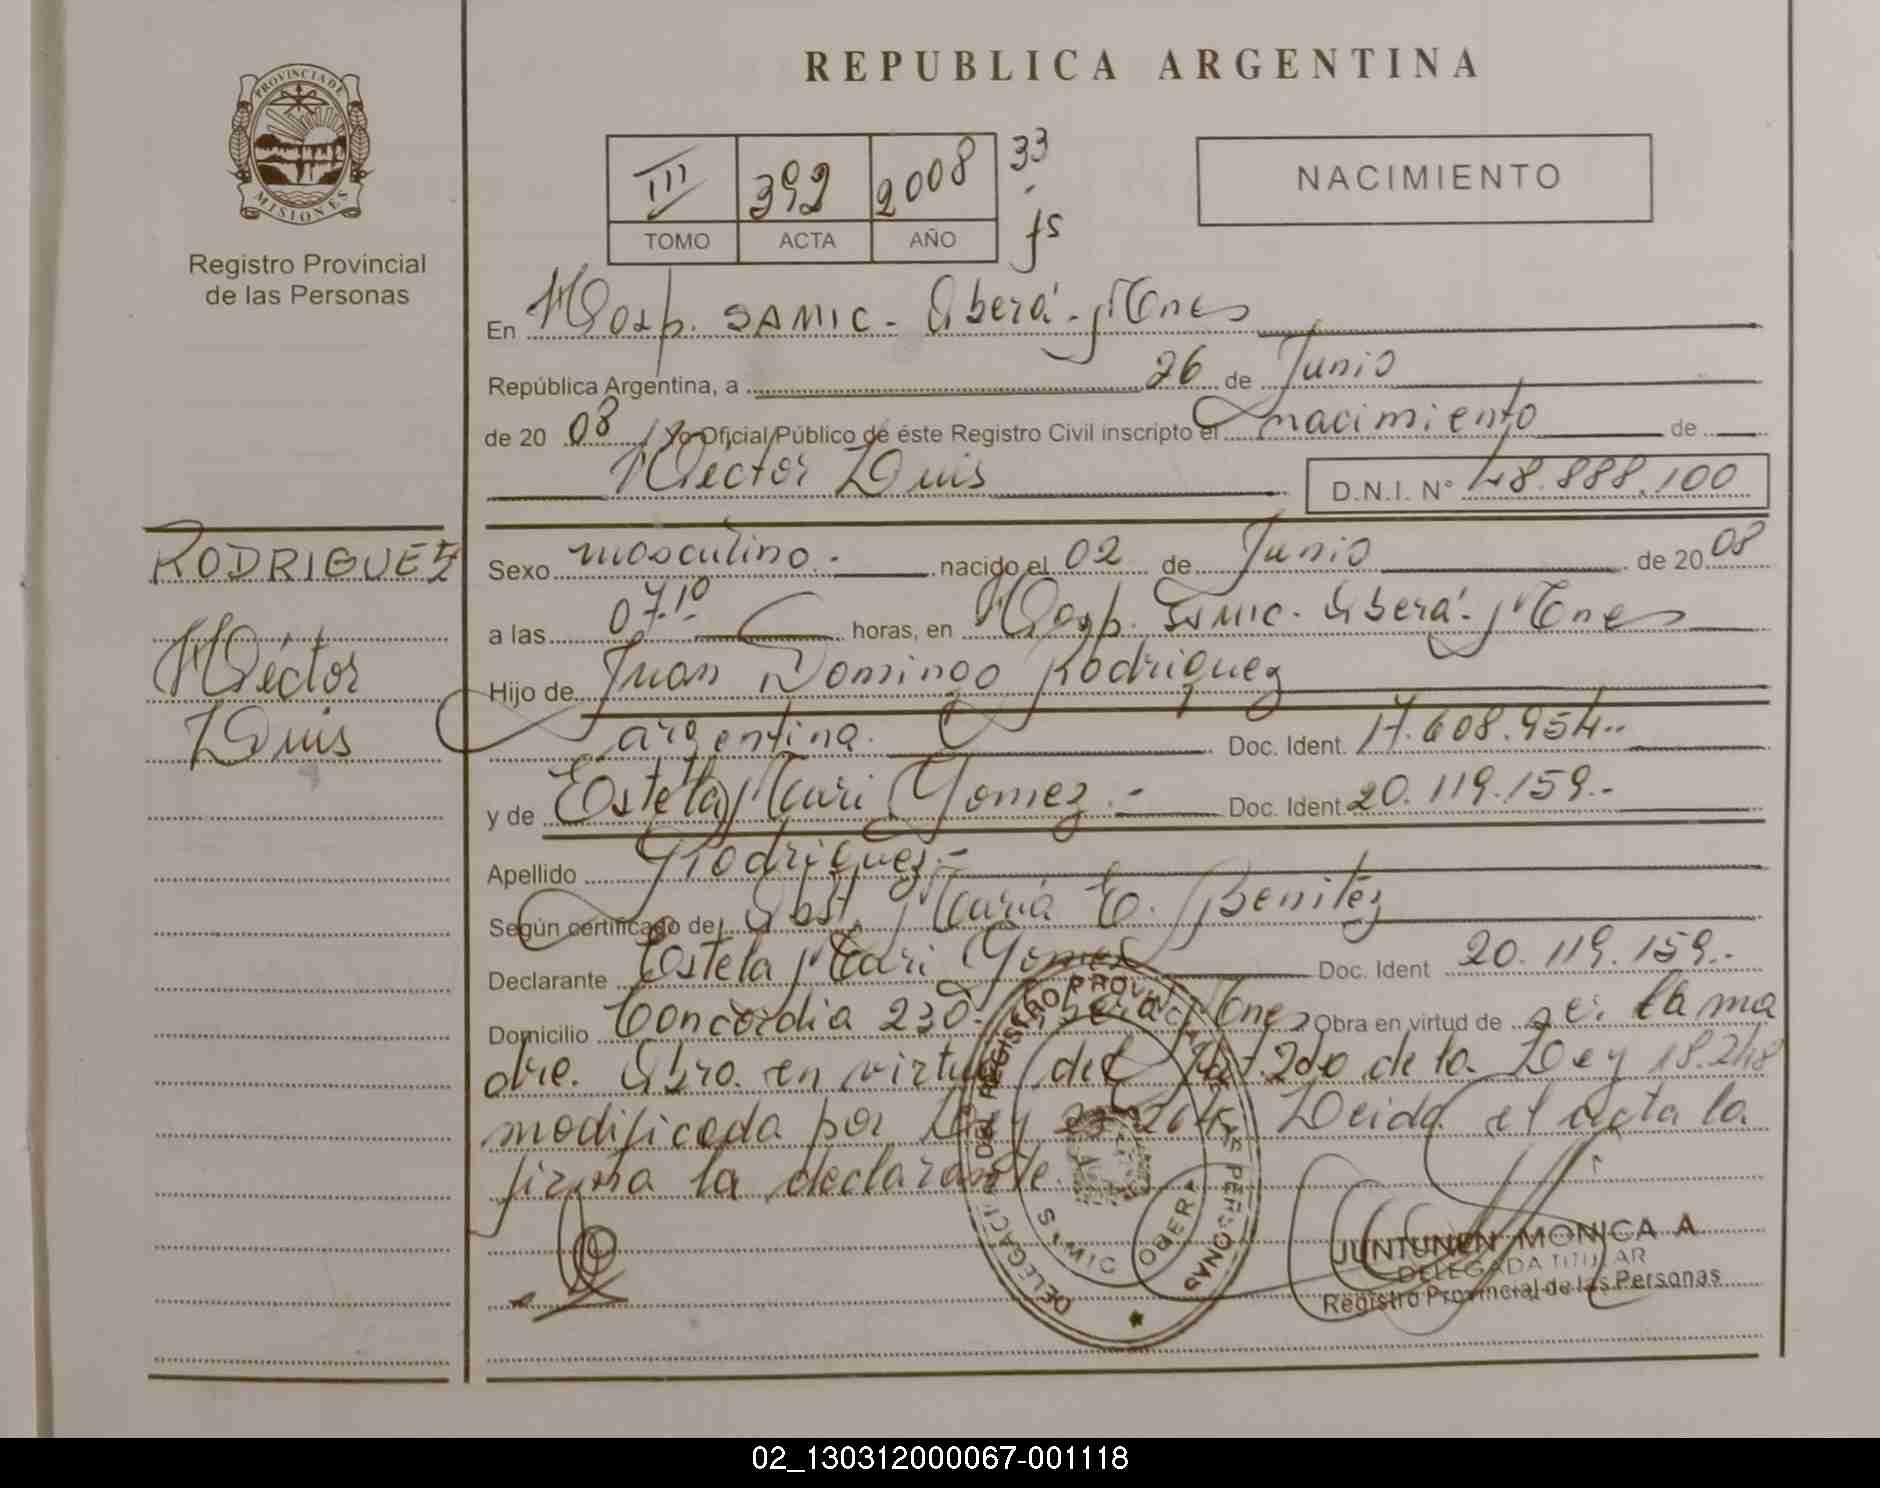 REPUBLICA ARGENTINA
PROVINCIA DE
MISIONES
Registro Provincial
de las Personas
III 392 2008 33
TOMO ACTA AÑO fs
NACIMIENTO
En Hosp. SAMIC - Oberá - Mnes
República Argentina, a 26 de Junio
de 20 08 Yo Oficial Público de éste Registro Civil inscripto el nacimiento de
Héctor Luis D.N.I. N° 48.888.100
RODRIGUEZ
Héctor
Luis
Sexo masculino.- nacido el 02 de Junio de 20 08
a las 07.10 horas, en Hosp. SAMIC - Oberá - Mnes
Hijo de Juan Domingo Rodriguez
argentina. Doc. Ident. 17.608.954.-
y de Estela Mari Gomez.- Doc. Ident 20.119.159.-
Apellido Rodriguez.-
Según certificado de Obst. Maria E. Benitez
Declarante Estela Mari Gomez Doc. Ident 20.119.159.-
Domicilio Concordia 230 - Oberá Mnes Obra en virtud de ser la ma
dre. Obra en virtud del Art. 2do de la Ley 18.248
modificada por Ley 23.264. Leida el acta la
firma la declarante.
DELEGACION DEL REGISTRO PROVINCIAL DE LAS PERSONAS
OBERA
JUNTUNEN MONICA A
DELEGADA TITULAR
Registro Provincial de las Personas
02_130312000067-001118